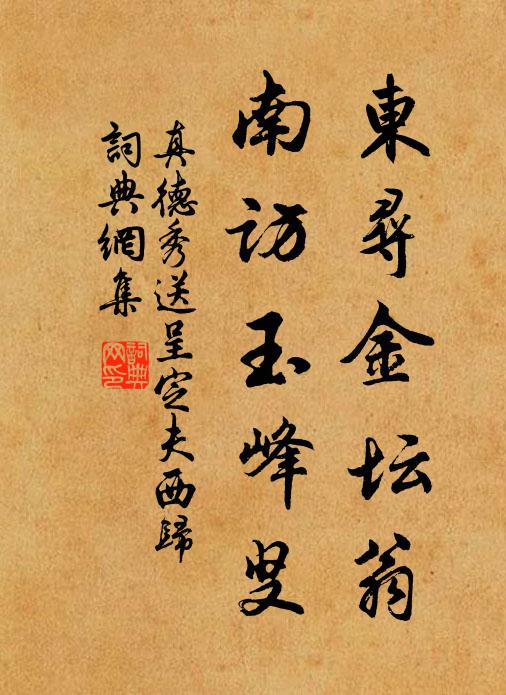 東尋金坛翁
南访玉峰叟
真德秀送呈定夫西歸
詞典網集
詞典網印